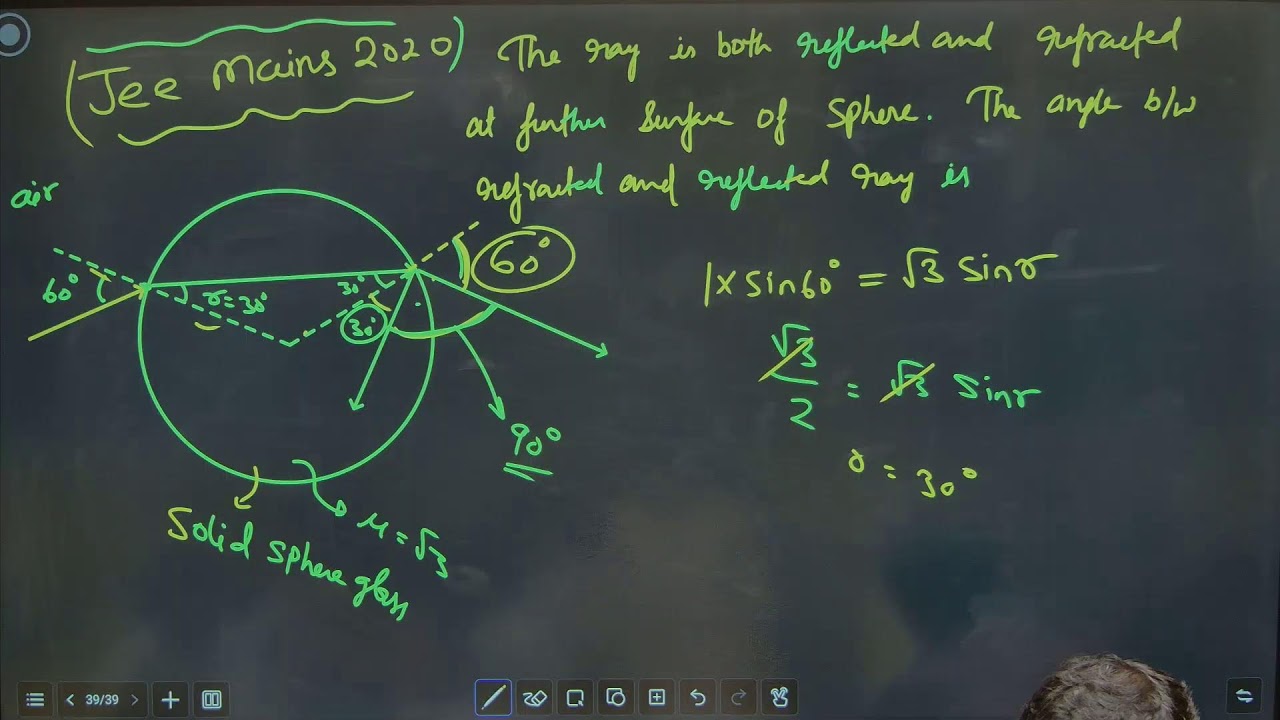 (Jee Mains 2020)
The ray is both reflected and refracted
at further Surface of Sphere. The angle b/w
refracted and reflected ray is
air
60°
r=30°
30°
30°
60°
90°
μ=√3
Solid sphere glass
1×sin60° = √3 Sinr
√3/2 = √3 Sinr
r = 30°
39/39